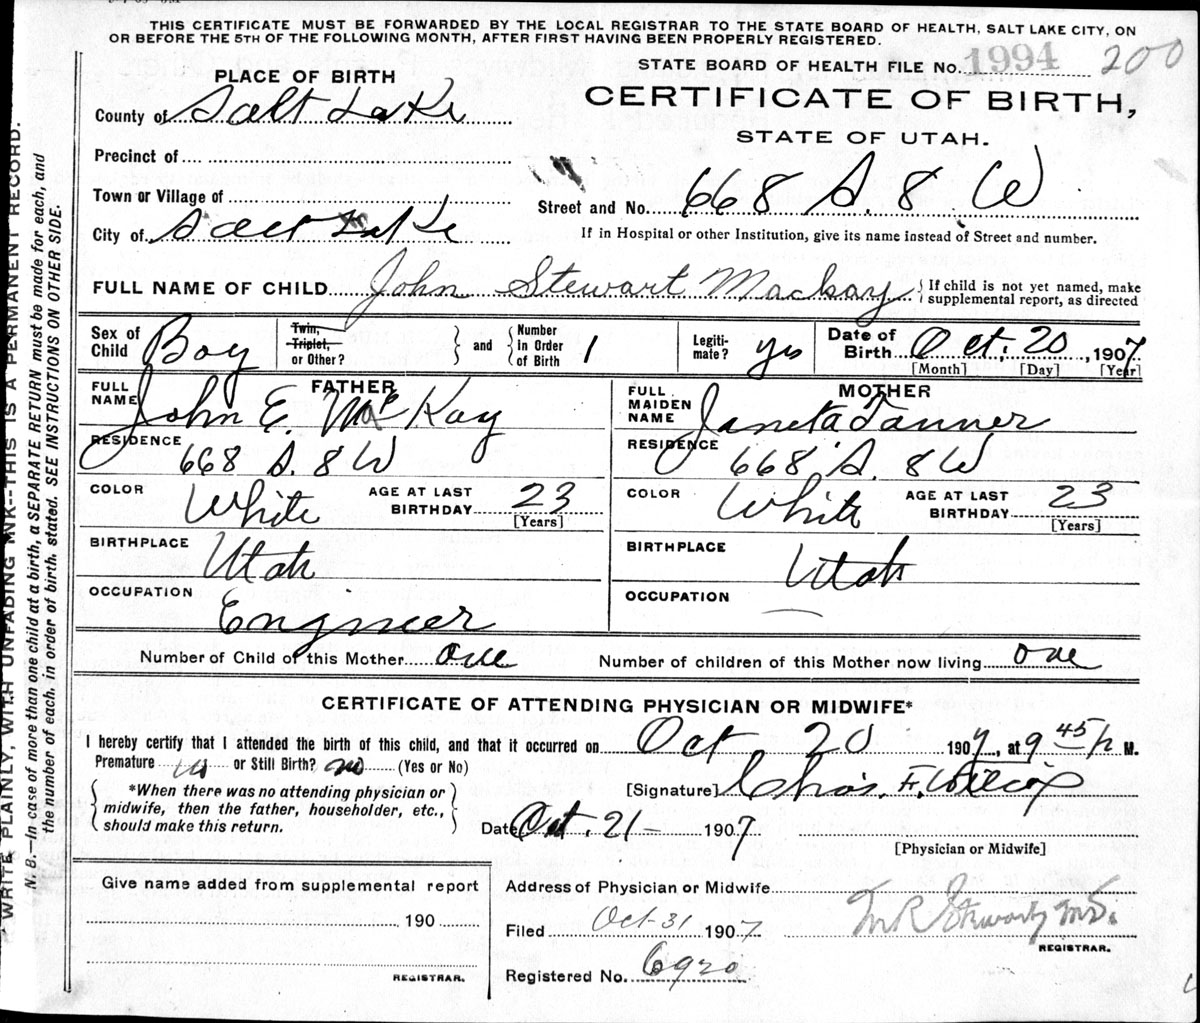 THIS CERTIFICATE MUST BE FORWARDED BY THE LOCAL REGISTRAR TO THE STATE BOARD OF HEALTH, SALT LAKE CITY, ON
OR BEFORE THE 5TH OF THE FOLLOWING MONTH, AFTER FIRST HAVING BEEN PROPERLY REGISTERED.
STATE BOARD OF HEALTH FILE No. 1994 200
PLACE OF BIRTH
CERTIFICATE OF BIRTH,
County of Salt Lake
STATE OF UTAH.
Precinct of
Town or Village of
Street and No. 668 S. 8 W
City of Salt Lake
If in Hospital or other Institution, give its name instead of Street and number.
FULL NAME OF CHILD John Stewart Mackay { If child is not yet named, make
supplemental report, as directed
Sex of Child Boy Twin, Triplet, or Other? } and { Number in Order of Birth 1 Legiti-mate? yes Date of Birth Oct. 20, 1907
[Month] [Day] [Year]
FULL NAME FATHER John E. McKay
FULL MAIDEN NAME MOTHER Janeta Tanner
RESIDENCE 668 S. 8 W
RESIDENCE 668 S. 8 W
COLOR White AGE AT LAST BIRTHDAY 23 [Years]
COLOR White AGE AT LAST BIRTHDAY 23 [Years]
BIRTHPLACE Utah
BIRTHPLACE Utah
OCCUPATION Engineer
OCCUPATION —
Number of Child of this Mother one Number of children of this Mother now living one
CERTIFICATE OF ATTENDING PHYSICIAN OR MIDWIFE*
I hereby certify that I attended the birth of this child, and that it occurred on Oct. 20 1907, at 9 45 p M.
Premature no or Still Birth? no (Yes or No)
*When there was no attending physician or
midwife, then the father, householder, etc.,
should make this return.
[Signature] Chas. F. Wilcox
Date Oct. 21 — 1907
[Physician or Midwife]
Give name added from supplemental report
190
REGISTRAR.
Address of Physician or Midwife
Filed Oct-31 1907 M.D.
REGISTRAR.
Registered No. 6920
WRITE PLAINLY, WITH UNFADING INK--THIS IS A PERMANENT RECORD.
N. B.—In case of more than one child at a birth, a SEPARATE RETURN must be made for each, and
the number of each, in order of birth, stated. SEE INSTRUCTIONS ON OTHER SIDE.